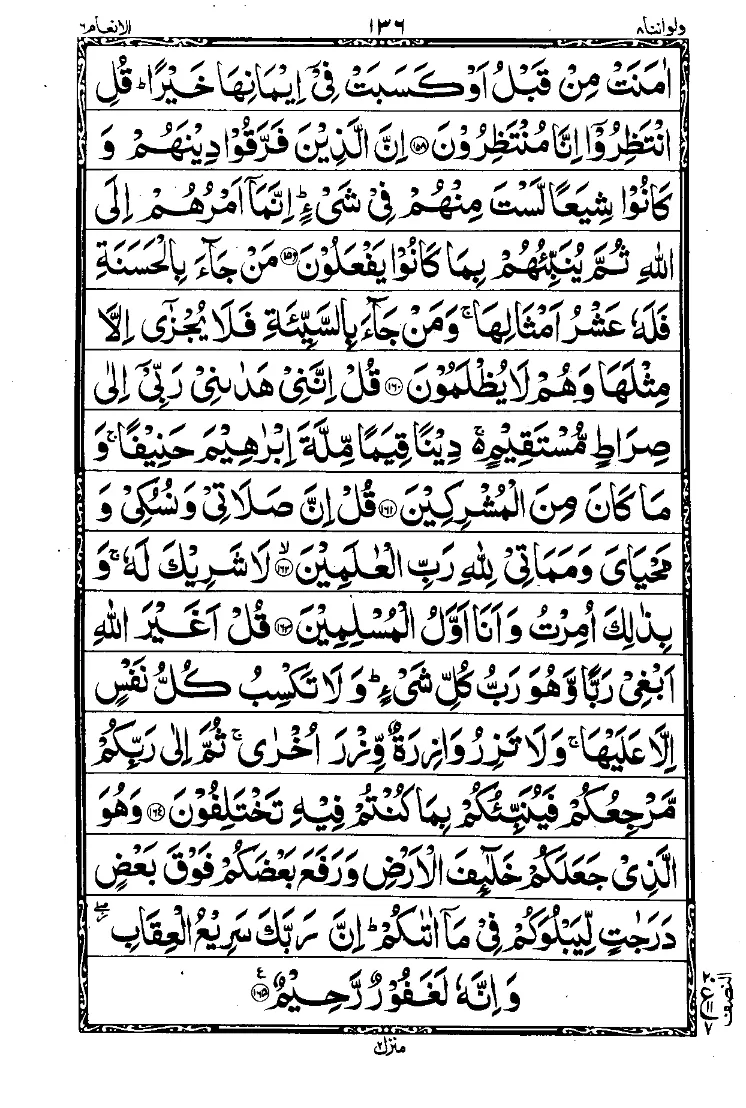 ولواننا٨ ١٣٦ الانعام٦
اٰمَنَتْ مِنْ قَبْلُ اَوْ كَسَبَتْ فِیْۤ اِیْمَانِهَا خَیْرًا ؕ قُلِ
انْتَظِرُوْۤا اِنَّا مُنْتَظِرُوْنَ ﴿۱۵۸﴾ اِنَّ الَّذِیْنَ فَرَّقُوْا دِیْنَهُمْ وَ
كَانُوْا شِیَعًا لَّسْتَ مِنْهُمْ فِیْ شَیْءٍ ؕ اِنَّمَاۤ اَمْرُهُمْ اِلَی
اللّٰهِ ثُمَّ یُنَبِّئُهُمْ بِمَا كَانُوْا یَفْعَلُوْنَ ﴿۱۵۹﴾ مَنْ جَآءَ بِالْحَسَنَةِ
فَلَهٗ عَشْرُ اَمْثَالِهَا ۚ وَمَنْ جَآءَ بِالسَّیِّئَةِ فَلَا یُجْزٰۤی اِلَّا
مِثْلَهَا وَهُمْ لَا یُظْلَمُوْنَ ﴿۱۶۰﴾ قُلْ اِنَّنِیْ هَدٰىنِیْ رَبِّیْۤ اِلٰی
صِرَاطٍ مُّسْتَقِیْمٍ ۚ۬ دِیْنًا قِیَمًا مِّلَّةَ اِبْرٰهِیْمَ حَنِیْفًا ۚ وَ
مَا كَانَ مِنَ الْمُشْرِكِیْنَ ﴿۱۶۱﴾ قُلْ اِنَّ صَلَاتِیْ وَنُسُكِیْ وَ
مَحْیَایَ وَمَمَاتِیْ لِلّٰهِ رَبِّ الْعٰلَمِیْنَ ﴿۱۶۲﴾ۙ لَا شَرِیْكَ لَهٗ ۚ وَ
بِذٰلِكَ اُمِرْتُ وَاَنَا اَوَّلُ الْمُسْلِمِیْنَ ﴿۱۶۳﴾ قُلْ اَغَیْرَ اللّٰهِ
اَبْغِیْ رَبًّا وَّهُوَ رَبُّ كُلِّ شَیْءٍ ؕ وَلَا تَكْسِبُ كُلُّ نَفْسٍ
اِلَّا عَلَیْهَا ۚ وَلَا تَزِرُ وَازِرَةٌ وِّزْرَ اُخْرٰی ۚ ثُمَّ اِلٰی رَبِّكُمْ
مَّرْجِعُكُمْ فَیُنَبِّئُكُمْ بِمَا كُنْتُمْ فِیْهِ تَخْتَلِفُوْنَ ﴿۱۶۴﴾ وَهُوَ
الَّذِیْ جَعَلَكُمْ خَلٰٓىِٕفَ الْاَرْضِ وَرَفَعَ بَعْضَكُمْ فَوْقَ بَعْضٍ
دَرَجٰتٍ لِّیَبْلُوَكُمْ فِیْ مَاۤ اٰتٰىكُمْ ؕ اِنَّ رَبَّكَ سَرِیْعُ الْعِقَابِ ۖؗ
وَاِنَّهٗ لَغَفُوْرٌ رَّحِیْمٌ ﴿۱۶۵﴾۠
النصف
ع
۲۰
۱۱
۷
منزل۲